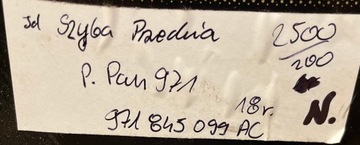 Jd Szyba Przednia 2500
200
P. Pan 971
18r. N.
971 845 099 AC